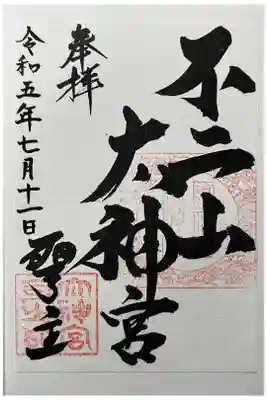 不二山
太神宮
奉拝
令和五年七月十一日
聖主